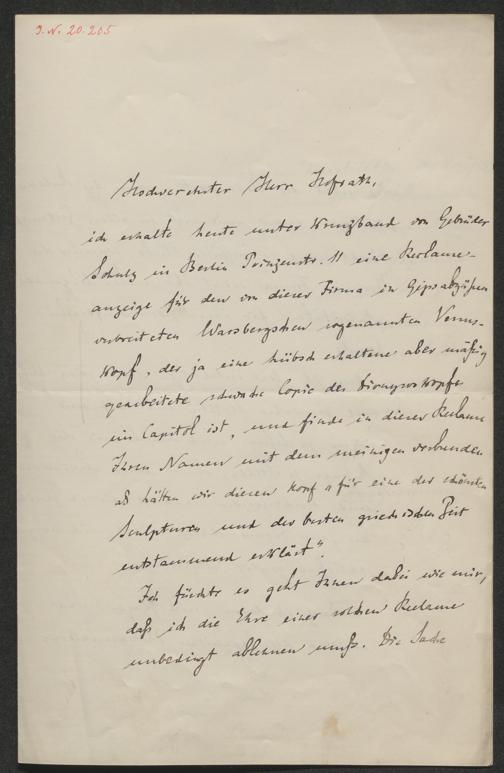 I. N. 20.205
Hochverehrter Herr Hofrath,
ich erhalte heute unter Kreuzband von Gebrüder
Schulz in Berlin Prinzenstr. 11 eine Reclame-
anzeige für den von dieser Firma in Gipsabgüßen
verbreiteten Warsbergschen sogenannten Venus-
kopf, der ja eine hübsch erhaltene aber mäßig
gearbeitete schwache Copie des Dionysoskopfs
im Capitol ist, und finde in dieser Reclame
Ihren Namen mit dem meinigen verbunden
als hätten wir diesen Kopf „für eine der schönsten
Sculpturen und der besten griechischen Zeit
entstammend erklärt“.
Ich fürchte es geht Ihnen dabei wie mir,
daß ich die Ehre einer solchen Reclame
unbedingt ablehnen muß. Die Sache